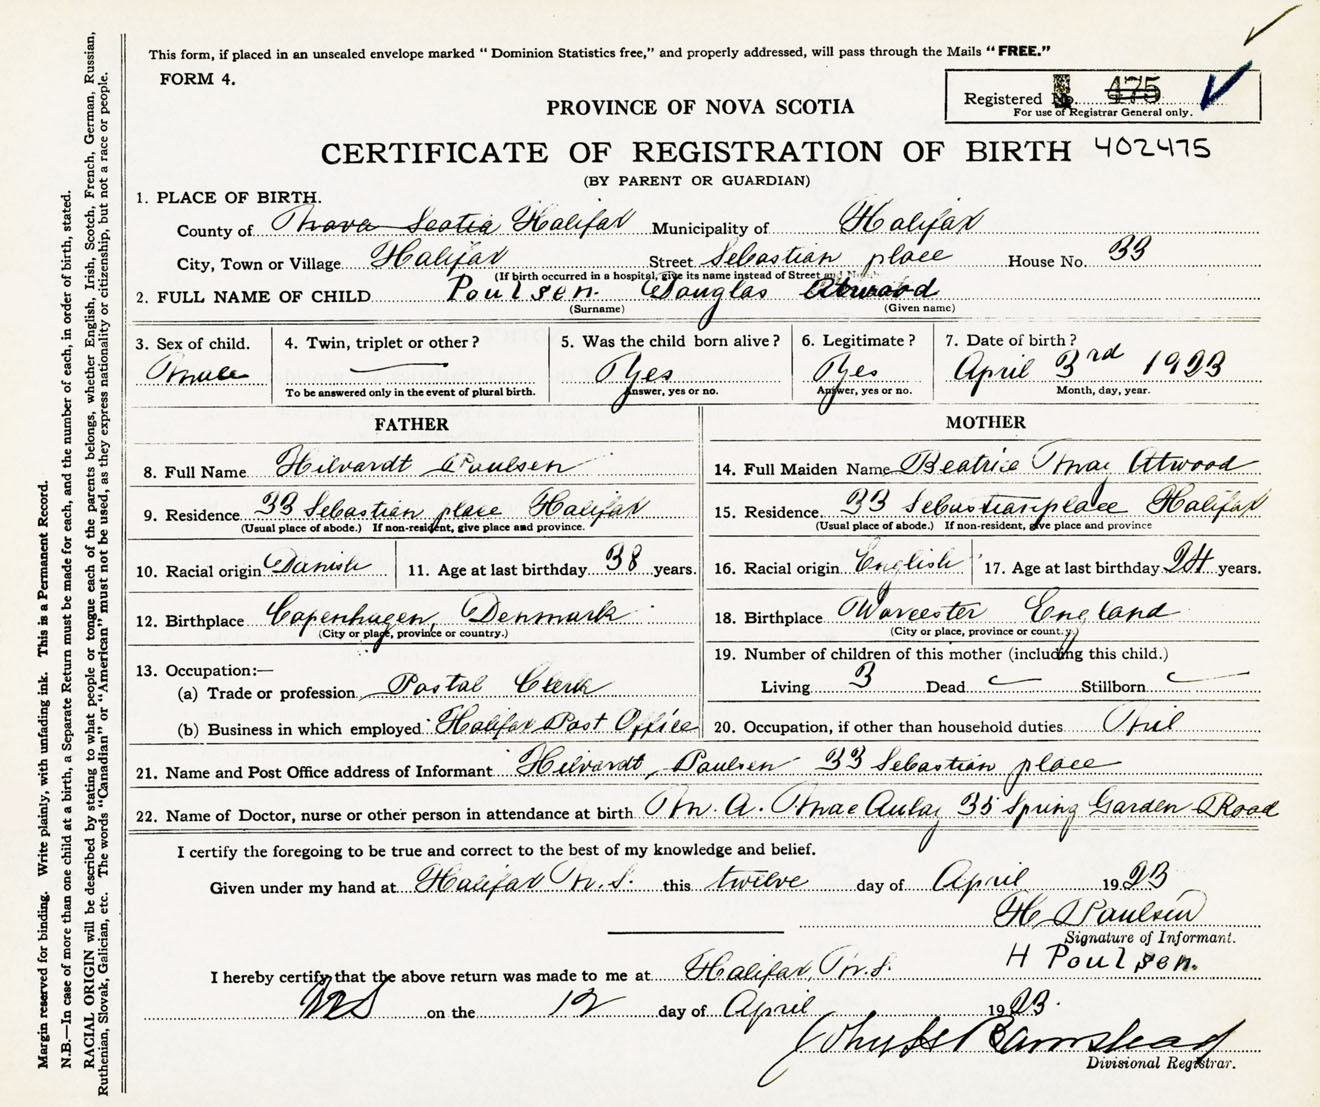 This form, if placed in an unsealed envelope marked "Dominion Statistics free," and properly addressed, will pass through the Mails "FREE."
FORM 4.
Registered No. 475
For use of Registrar General only.
PROVINCE OF NOVA SCOTIA
CERTIFICATE OF REGISTRATION OF BIRTH 402475
(BY PARENT OR GUARDIAN)
1. PLACE OF BIRTH.
County of Nova Scotia Halifax Municipality of Halifax
City, Town or Village Halifax Street Sebastian place House No. 33
(If birth occurred in a hospital, give its name instead of Street and No.)
2. FULL NAME OF CHILD Poulsen Douglas Atwood
(Surname) (Given name)
3. Sex of child. 4. Twin, triplet or other? 5. Was the child born alive? 6. Legitimate? 7. Date of birth?
Male — Yes Yes April 3rd 1923
To be answered only in the event of plural birth. Answer, yes or no. Answer, yes or no. Month, day, year.
FATHER
8. Full Name Hilvardt Paulsen
9. Residence 33 Sebastian place Halifax
(Usual place of abode.) If non-resident, give place and province.
10. Racial origin Danish 11. Age at last birthday 38 years.
12. Birthplace Copenhagen, Denmark
(City or place, province or country.)
13. Occupation:—
(a) Trade or profession Postal Clerk
(b) Business in which employed Halifax Post Office
MOTHER
14. Full Maiden Name Beatrice Mae Atwood
15. Residence 33 Sebastian place Halifax
(Usual place of abode.) If non-resident, give place and province
16. Racial origin English 17. Age at last birthday 24 years.
18. Birthplace Worcester England
(City or place, province or country.)
19. Number of children of this mother (including this child.)
Living 3 Dead — Stillborn —
20. Occupation, if other than household duties Nil
21. Name and Post Office address of Informant Hilvardt Paulsen 33 Sebastian place
22. Name of Doctor, nurse or other person in attendance at birth M. A. MacAulay 35 Spring Garden Road
I certify the foregoing to be true and correct to the best of my knowledge and belief.
Given under my hand at Halifax N.S. this twelve day of April 1923
H Paulsen
Signature of Informant.
H Poulsen.
I hereby certify that the above return was made to me at Halifax, N.S.
NS on the 12 day of April 1923.
Barnstead
Divisional Registrar.
Margin reserved for binding. Write plainly, with unfading ink. This is a Permanent Record.
N.B.—In case of more than one child at a birth, a Separate Return must be made for each, and the number of each, in order of birth, stated.
RACIAL ORIGIN will be described by stating to what people or tongue each of the parents belongs, whether English, Irish, Scotch, French, German, Russian,
Ruthenian, Slovak, Galician, etc. The words "Canadian" or "American" must not be used, as they express nationality or citizenship, but not a race or people.